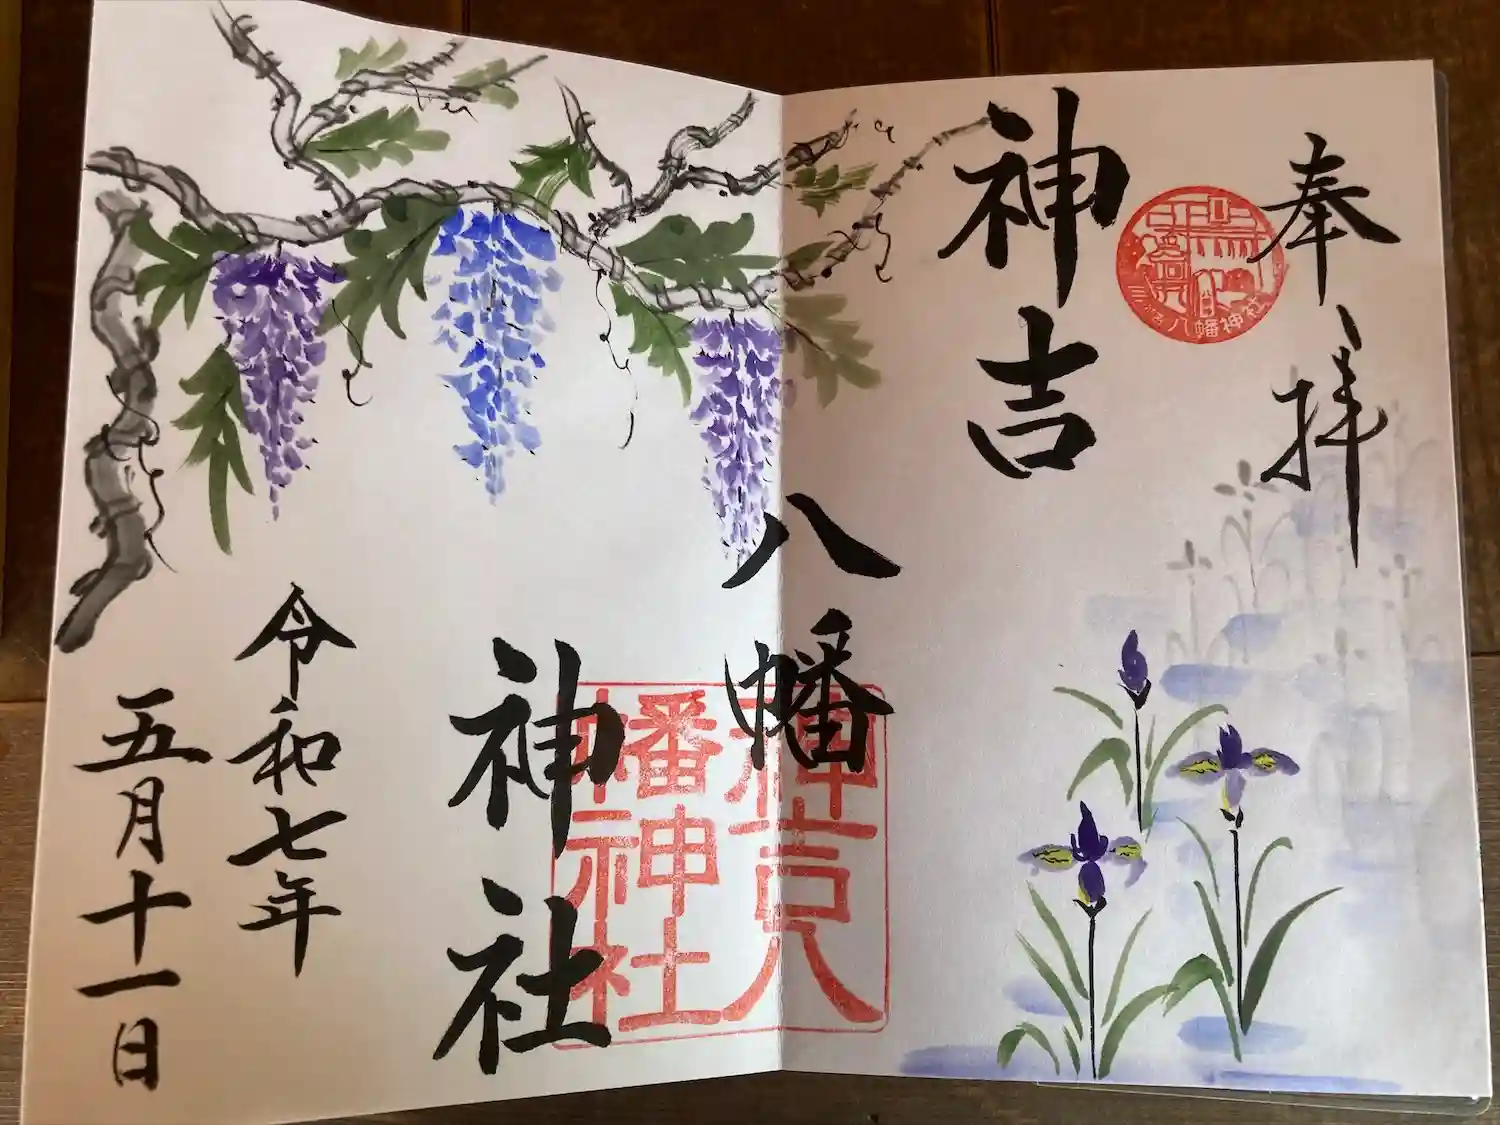 奉拝
神吉
八幡
神社
令和七年
五月十一日
八幡神社
神吉八
幡神社